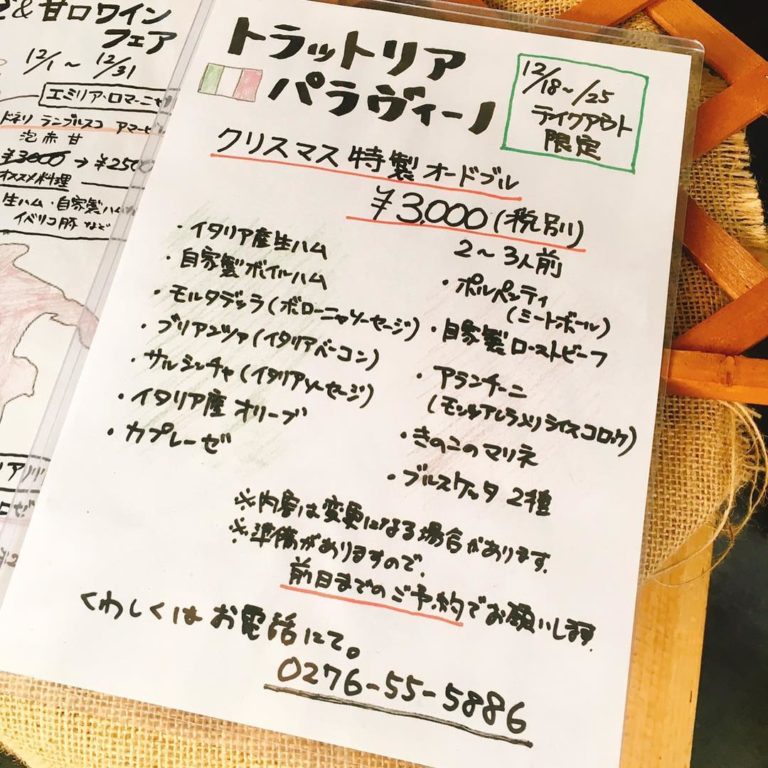 &甘口ワイン
フェア
12/1~12/31
エミリア・ロマーニャ
ランブルスコ アマービ
泡 赤 甘
¥3000→¥2500
オススメ料理
生ハム・自家製ハム
イベリコ豚 など
トラットリア
パラヴィーノ
12/18~/25
テイクアウト
限定
クリスマス 特製 オードブル
¥3,000(税別)
2~3人前
・イタリア産生ハム
・自家製ボイルハム
・モルタデッラ(ボローニャソーセージ)
・ブリアンツァ(イタリアベーコン)
・サルシッチャ(イタリアソーセージ)
・イタリア産 オリーブ
・カプレーゼ
・ポルペッティ
(ミートボール)
・自家製ローストビーフ
・アランチーニ
(モッツァレラ入りライスコロッケ)
・きのこのマリネ
・ブルスケッタ 2種
※内容は変更になる場合があります.
※準備がありますので、
前日までのご予約でお願いします.
くわしくは お電話にて。
0276-55-5886